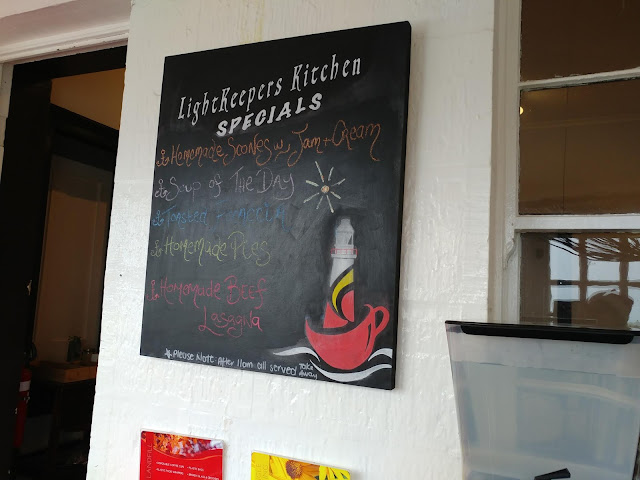 LightKeepers Kitchen
SPECIALS
Homemade Scones w Jam + Cream
Soup of The Day
Toasted
Homemade Pies
Homemade Beef
Lasagna
* Please Note After 11am all served Take
Away
LANDFILL